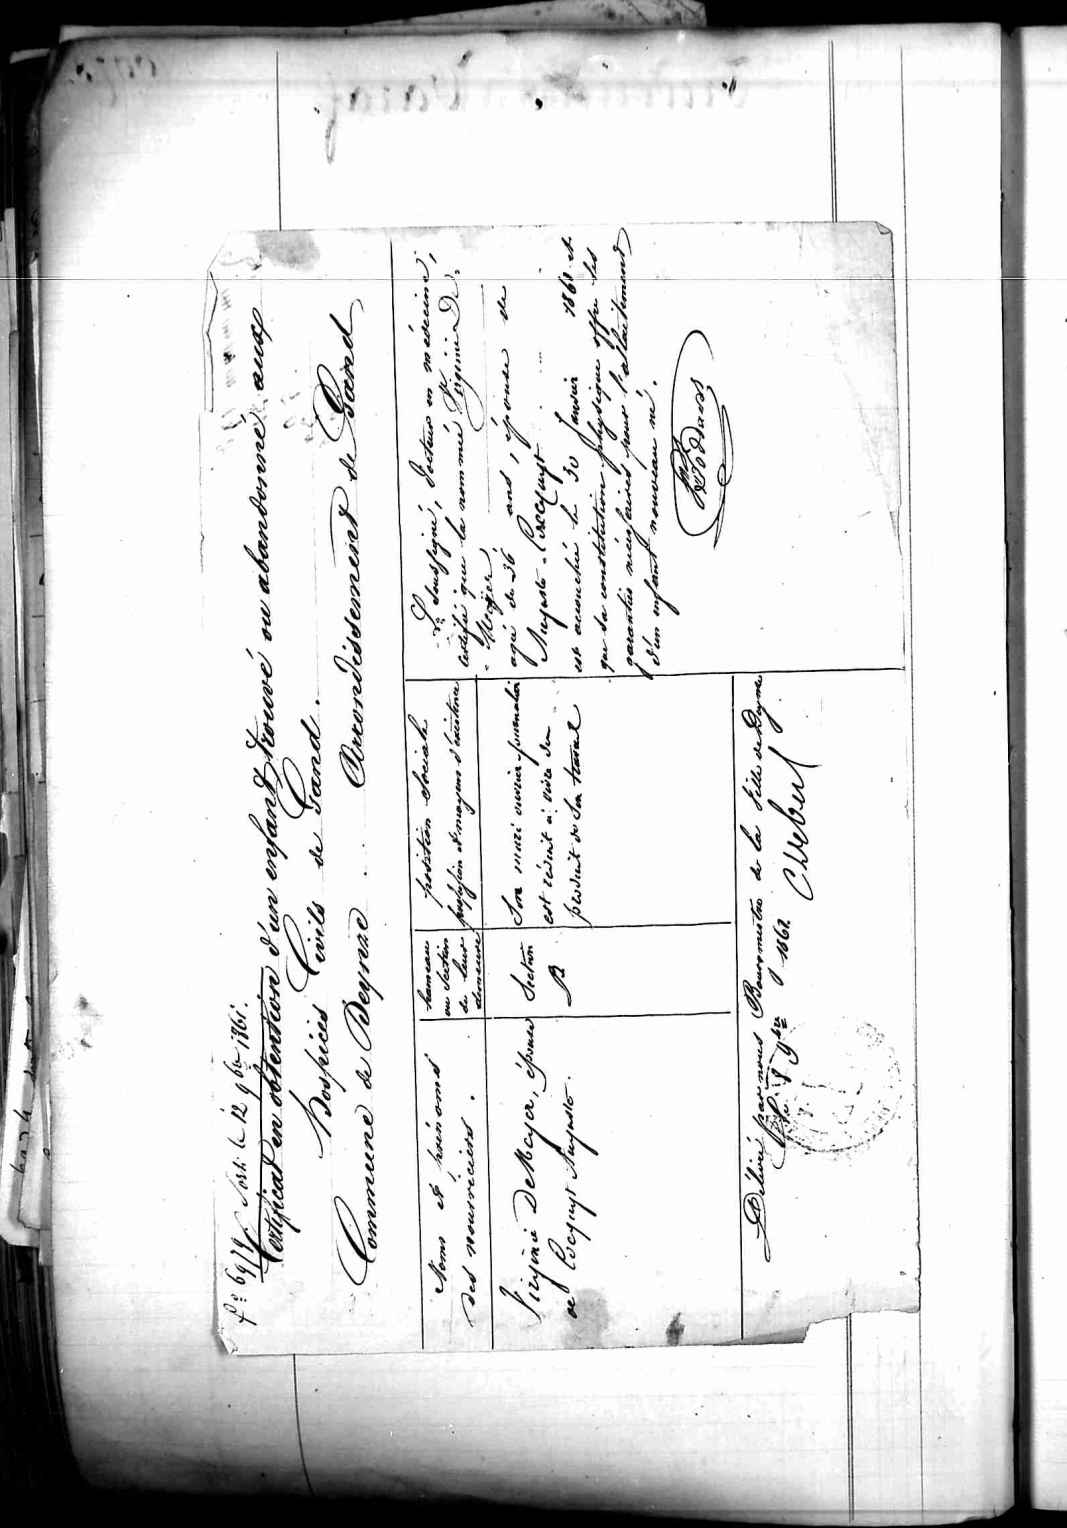 Sorti le 12 9bre 1861.
Certificat en obtention d'un enfant trouvé ou abandonné aux
Hospices Civils de Gand.
Commune de Deynze Arrondissement de Gand
Noms et prénoms
des nourriciers.
hameau
ou section
de leur
demeure
position sociale
profession et moyens d'existence
Virginie De Meyer, épouse
de Auguste.
Section
B
Son mari ouvrier journalier
est réduit à vivre du
produit de son travail
Le soussigné, Docteur en médecine,
certifie que la nommée Virginie De
Meyer
agée de 36 ans, épouse de
Auguste
est accouchée le 30 Janvier 1861 et
que sa constitution physique offre les
garanties nécessaires pour l'allaitement
d'un enfant nouveau né.
Délivré par nous Bourgmestre de la Ville de Deynze